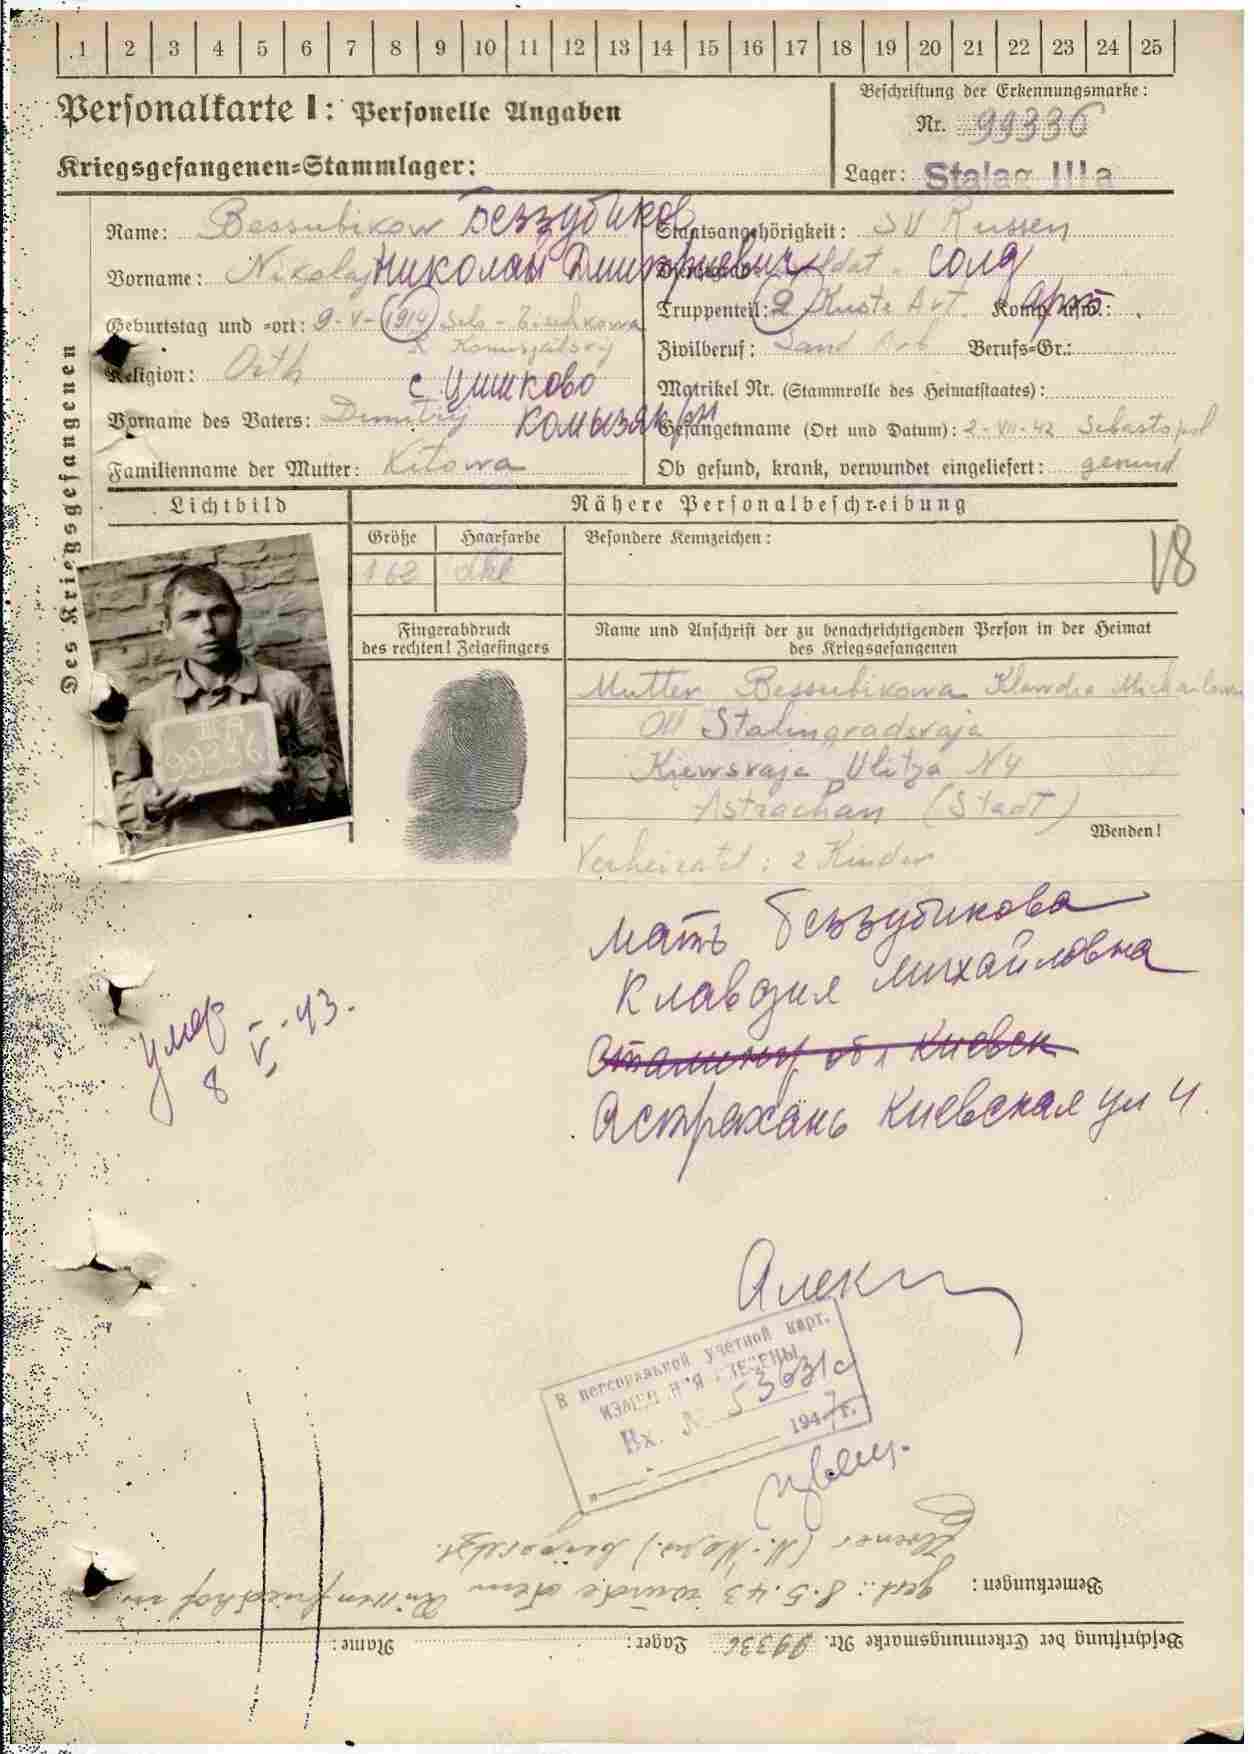 1 2 3 4 5 6 7 8 9 10 11 12 13 14 15 16 17 18 19 20 21 22 23 24 25
Personalkarte I: Personelle Angaben
Beschriftung der Erkennungsmarke:
Nr. 99336
Kriegsgefangenen=Stammlager:
Lager: Stalag IIIa
Des Kriegsgefangenen
Name: Bessubikow Беззубиков
Vorname: Nikolaj Николай Дмитриевич
Geburtstag und =ort: 9-V-1914 Selo-
с Чишково
Religion: Orth
Vorname des Vaters: Dmitrij
Familienname der Mutter: Kitowa
Staatsangehörigkeit: SU Russen
Soldat. солд
Truppenteil: 2 Küste Art. Komp. usw.:
Zivilberuf: Land Arb Berufs=Gr.:
Matrikel Nr. (Stammrolle des Heimatstaates):
Gefangennahme (Ort und Datum): 2-VII-42 Sebastopol
Ob gesund, krank, verwundet eingeliefert: gesund
Lichtbild
Nähere Personalbeschreibung
Größe Haarfarbe Besondere Kennzeichen:
162 dkl
V8
III A
99336
Fingerabdruck
des rechten! Zeigefingers
Name und Anschrift der zu benachrichtigenden Person in der Heimat
des Kriegsgefangenen
Mutter Bessubikowa Klawdia Michailowna
Stalingradskaja
Kiewskaja Ulitza N4
Astrachan (Stadt)
Wenden!
Verheiratet: 2 Kinder
мать Беззубикова
Клавдия Михайловна
Астрахань Киевская ул 4
умер
8 V-43.
В персональной учетной карт.
ИЗМЕНЕНИЯ ВНЕСЕНЫ
Вх. № 53631с
1947 г.
Bemerkungen: gest.: 8.5.43 wurde dem
Beschriftung der Erkennungsmarke Nr. 99336 Lager: Name: